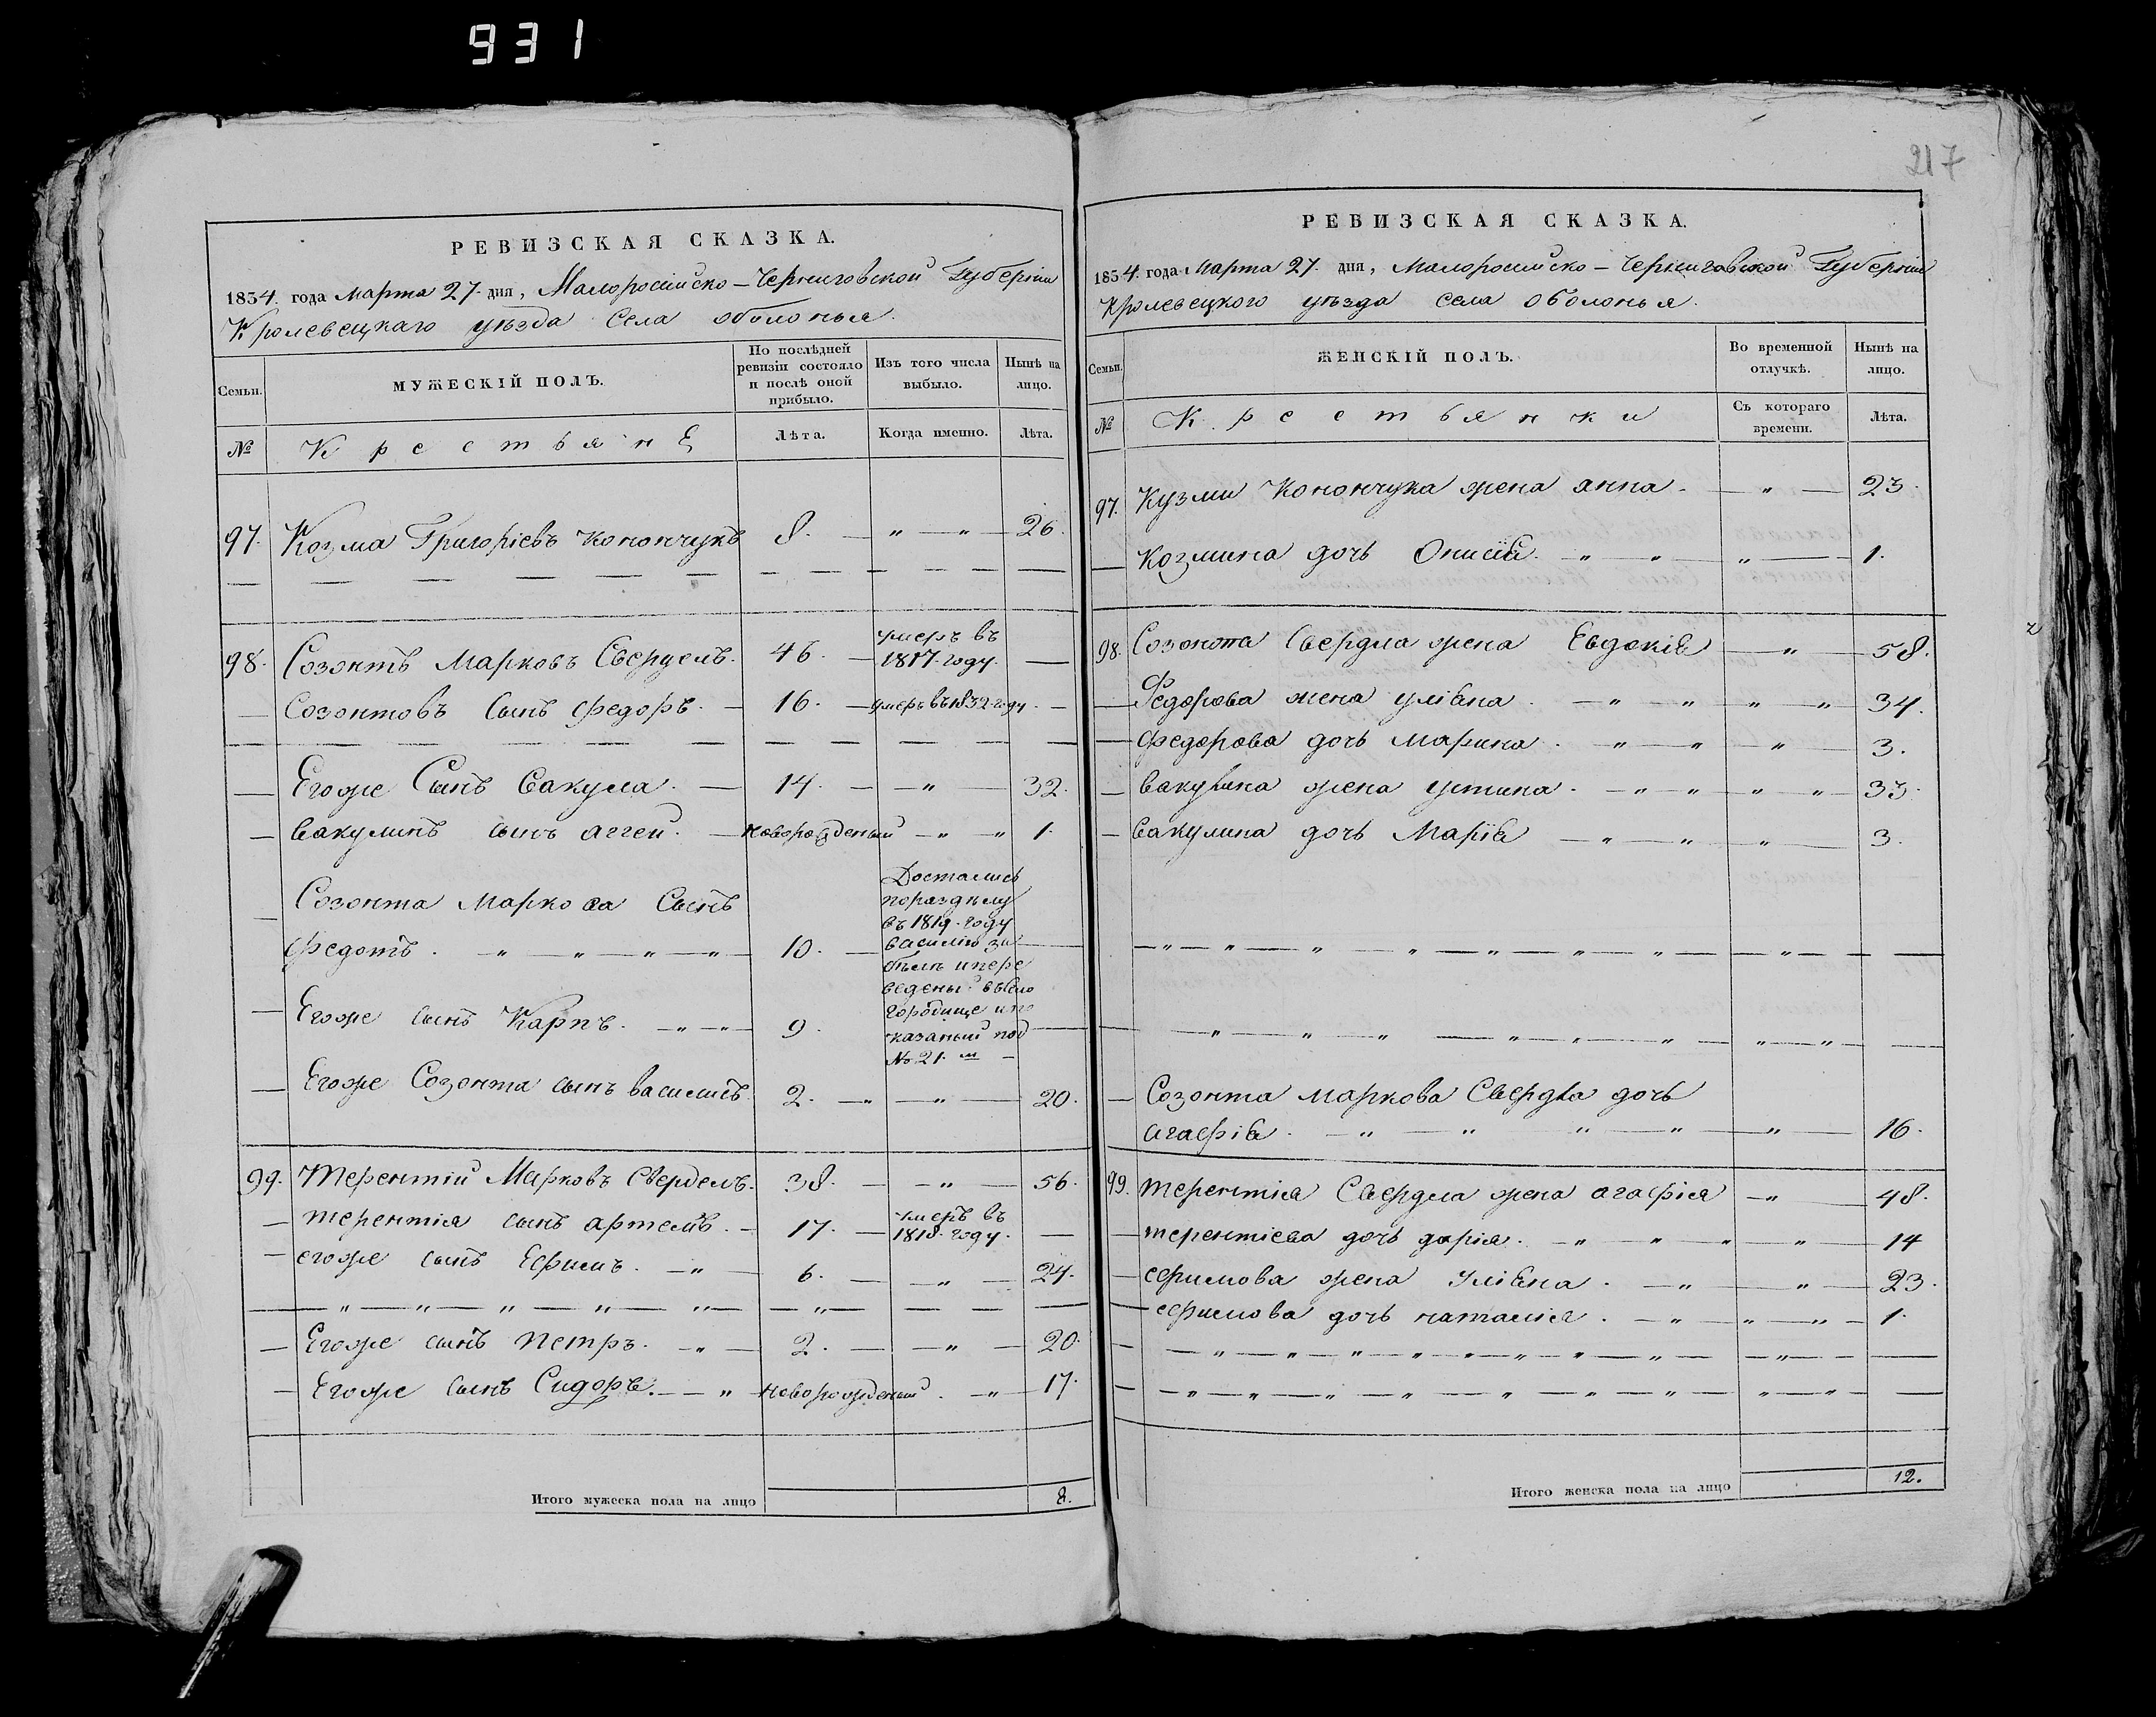 931
217
РЕВИЗСКАЯ СКАЗКА.
1834. года Марта 27. дня, Малоросийско-Черниговской Губернии
Кролевецкаго уѣзда Села оболонья.
Семьи. МУЖЕСКІЙ ПОЛЪ. По послѣдней ревизіи состояло и послѣ оной прибыло. Изъ того числа выбыло. Нынѣ на лицо.
№ Крестьянѣ Лѣта. Когда именно. Лѣта.
97. Козма Григоріевъ Конончукъ 8. — „ — „ — 26.
98. Созонтъ Марковъ Свердель. 46. — умеръ въ 1817. году. —
— Созонтовъ Сынъ Федоръ. — 16. — умеръ въ 1832. году. —
— Егоже Сынъ Вакула. — 14. — — „ — 32.
— Вакулинъ сынъ аггей. — новорожденый — „ — „ 1.
— Созонта Маркова Сынъ
Федотъ. — „ — „ — „ — „ — 10. —
— Егоже сынъ Карпъ. — „ — „ — 9.
Достались
поразделу
въ 1819. году
василию
ведены
городище
казаный под
№ 21.м —
— Егоже Созонта сынъ василій. 2. — „ — „ — 20.
99. Терентій Марковъ Свердель. 38. — — „ — 56.
— терентія сынъ артемъ. — 17. — умеръ въ 1818. году. —
— егоже сынъ Ефимъ. — „ — 6. — — „ — 24.
— „ — „ — „ — „ — „ — — „ — — — —
— Егоже сынъ петръ. — „ — 2. — — „ — 20.
— Егоже сынъ Сидоръ. — „ новорожденый. — „ — 17.
Итого мужеска пола на лицо 8.
РЕВИЗСКАЯ СКАЗКА.
1834. года Марта 27. дня, Малоросийско-Черниговской Губерніи
Кролевецкого уѣзда села оболонья.
Семьи. ЖЕНСКІЙ ПОЛЪ. Во временной отлучкѣ. Нынѣ на лицо.
№ Крестьянки Съ котораго времени. Лѣта.
97. Кузми Конончука жена анна. — „ — 23.
— Козмина дочь Онисія. — „ — „ „ — 1.
98. Созонта Свердла жена Евдокія — „ — 58.
— Федорова жена уліяна. — „ — „ — „ — „ 34.
— Федорова дочь Марина. — „ — „ „ — 3.
— Вакулина жена устина. — „ — „ — „ — „ — 33.
— Вакулина дочь Марія — „ — „ „ — 3.
— „ — „ — „ — „ — „ — „ — „ — — „ — — —
— „ — „ — „ — „ — „ — „ — „ — „ — —
— Созонта маркова Свердла дочь
агафія. — „ — „ — „ — „ — „ — 16.
99. терентія Свердла жена агафія — „ 48.
— терентіева дочь дарія. — „ — „ — „ — „ — 14
— ефимова жена Уліяна. — „ — „ — 23.
— ефимова дочь наталія. — „ — „ — „ — 1.
— — „ — „ — „ — „ — „ — „ — „ — „ — — „ — —
— — „ — „ — „ — „ — „ — „ — „ — „ — „ — „ — —
Итого женска пола на лицо 12.